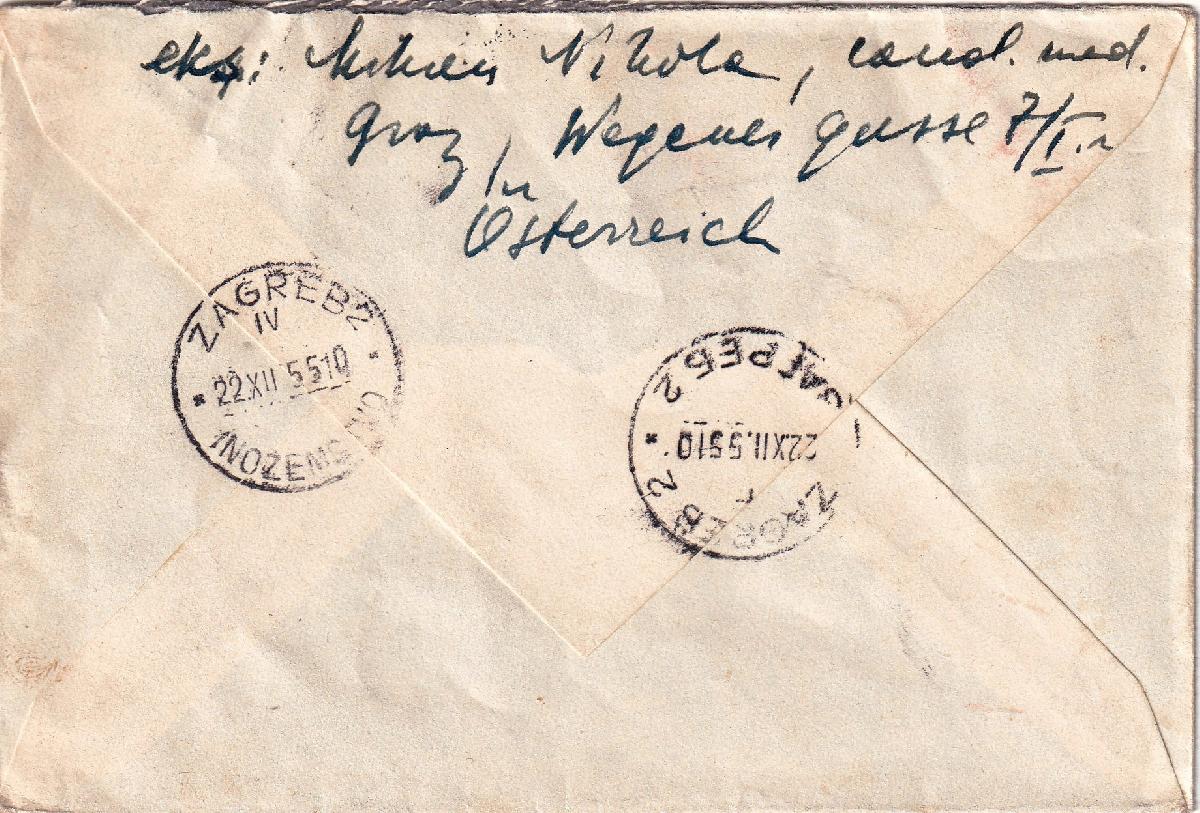 eksp: Nikola, cand. med.
Graz, Wegenergasse 7/I.
Österreich
ZAGREB 2
IV
22 XII 55 10
INOZEMS
ЗАГРЕБ 2
22 XII. 55 10
ZAGREB 2